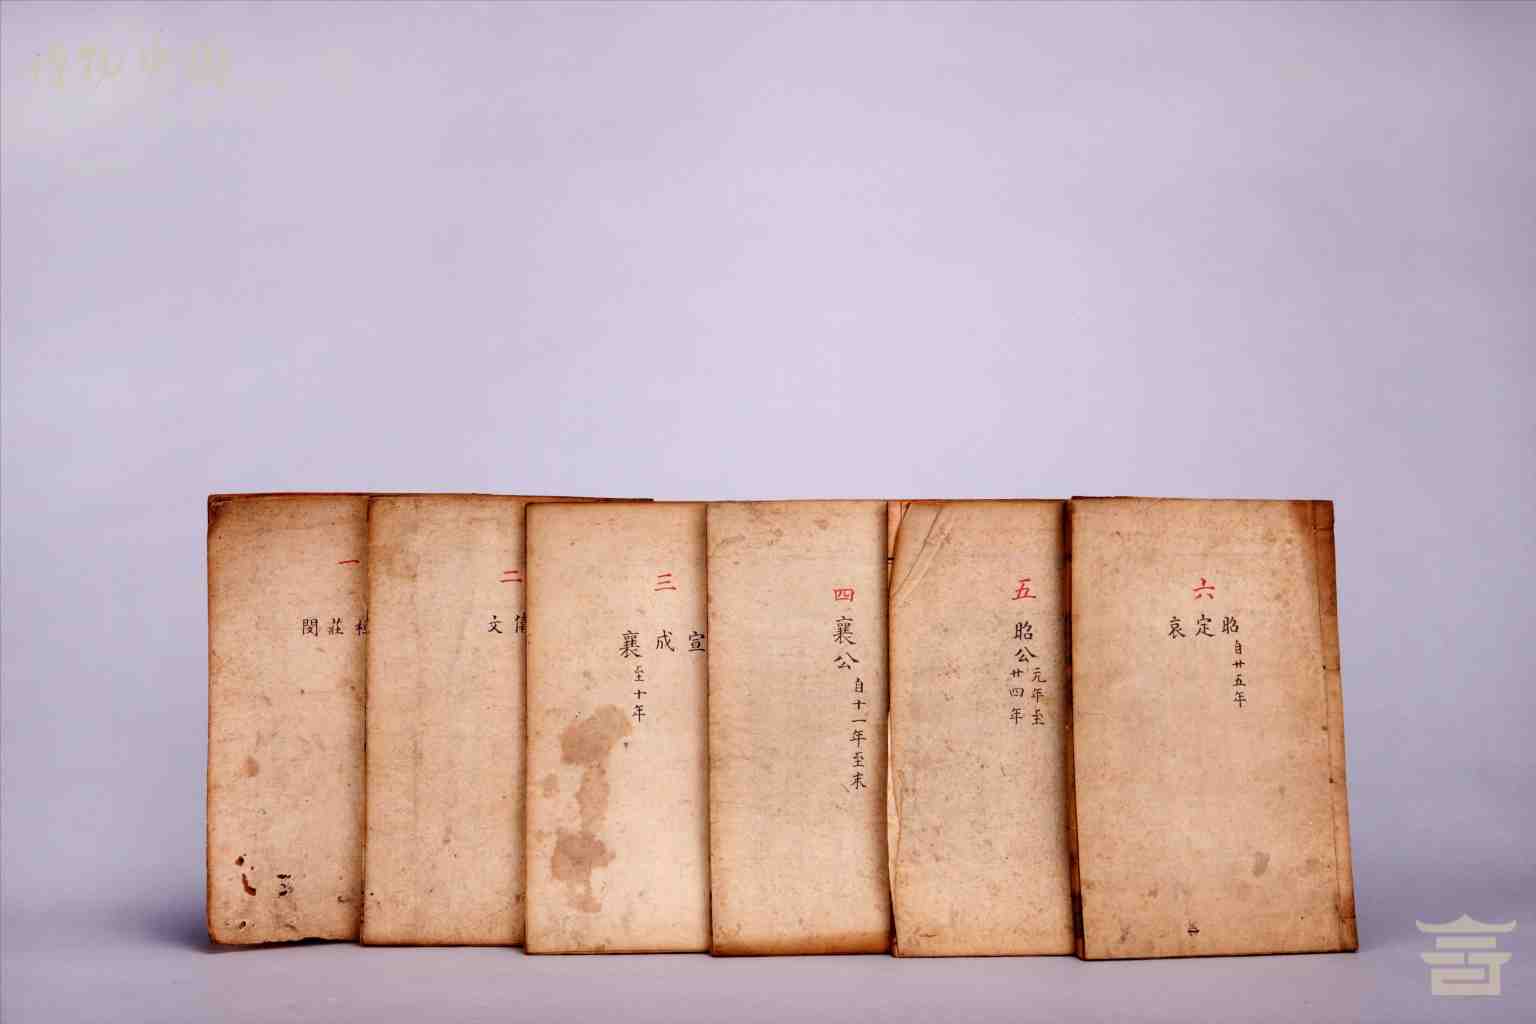 一
莊
閔
二
文
三
宣
成
襄至十年
四
襄公
自十一年至末
五
昭公
元年至
廿四年
六
昭自廿五年
定
哀